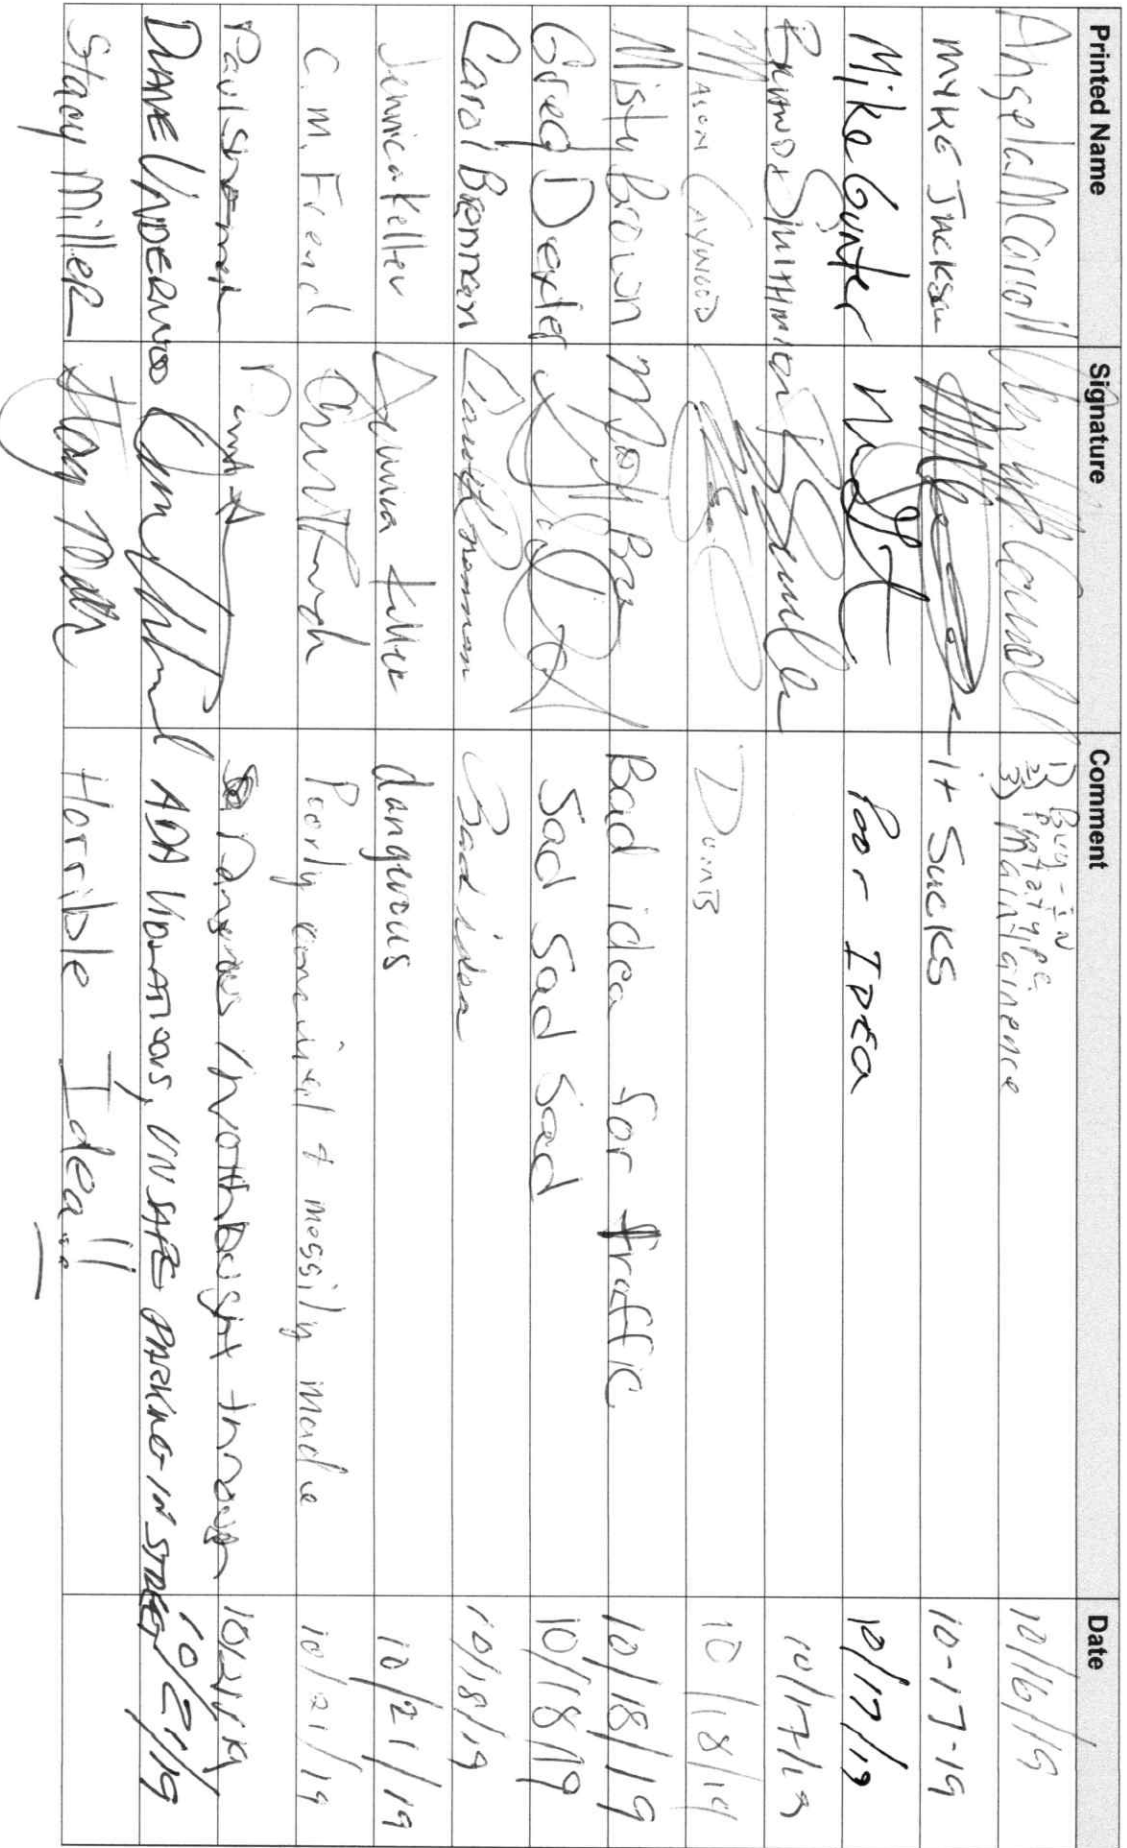 Printed Name Signature Comment Date
Angela M Carroll 1) Buy-in 10/16/19
2) Prototype
3) Maintainence
MYKE JACKSON It Sucks 10-17-19
Mike Gunter Poor IDEA 10/17/19
10/17/19
MASON CAYWOOD DUMB 10/18/19
Misty Brown Bad idea for traffic 10/18/19
Greg Dexter Sad Sad Sad 10/18/19
Carol Brennan Carol Brennan Bad idea 10/18/19
Jennica Keller Jennica Keller dangerous 10/21/19
C.M. French Poorly conceived & messily made 10/21/19
Paul Dangerous / not thought through 10/21/19
DIANE UNDERWOOD ADA VIOLATIONS, UNSAFE PARKING IN STREET 10/21/19
Stacy Miller Horrible Idea!!